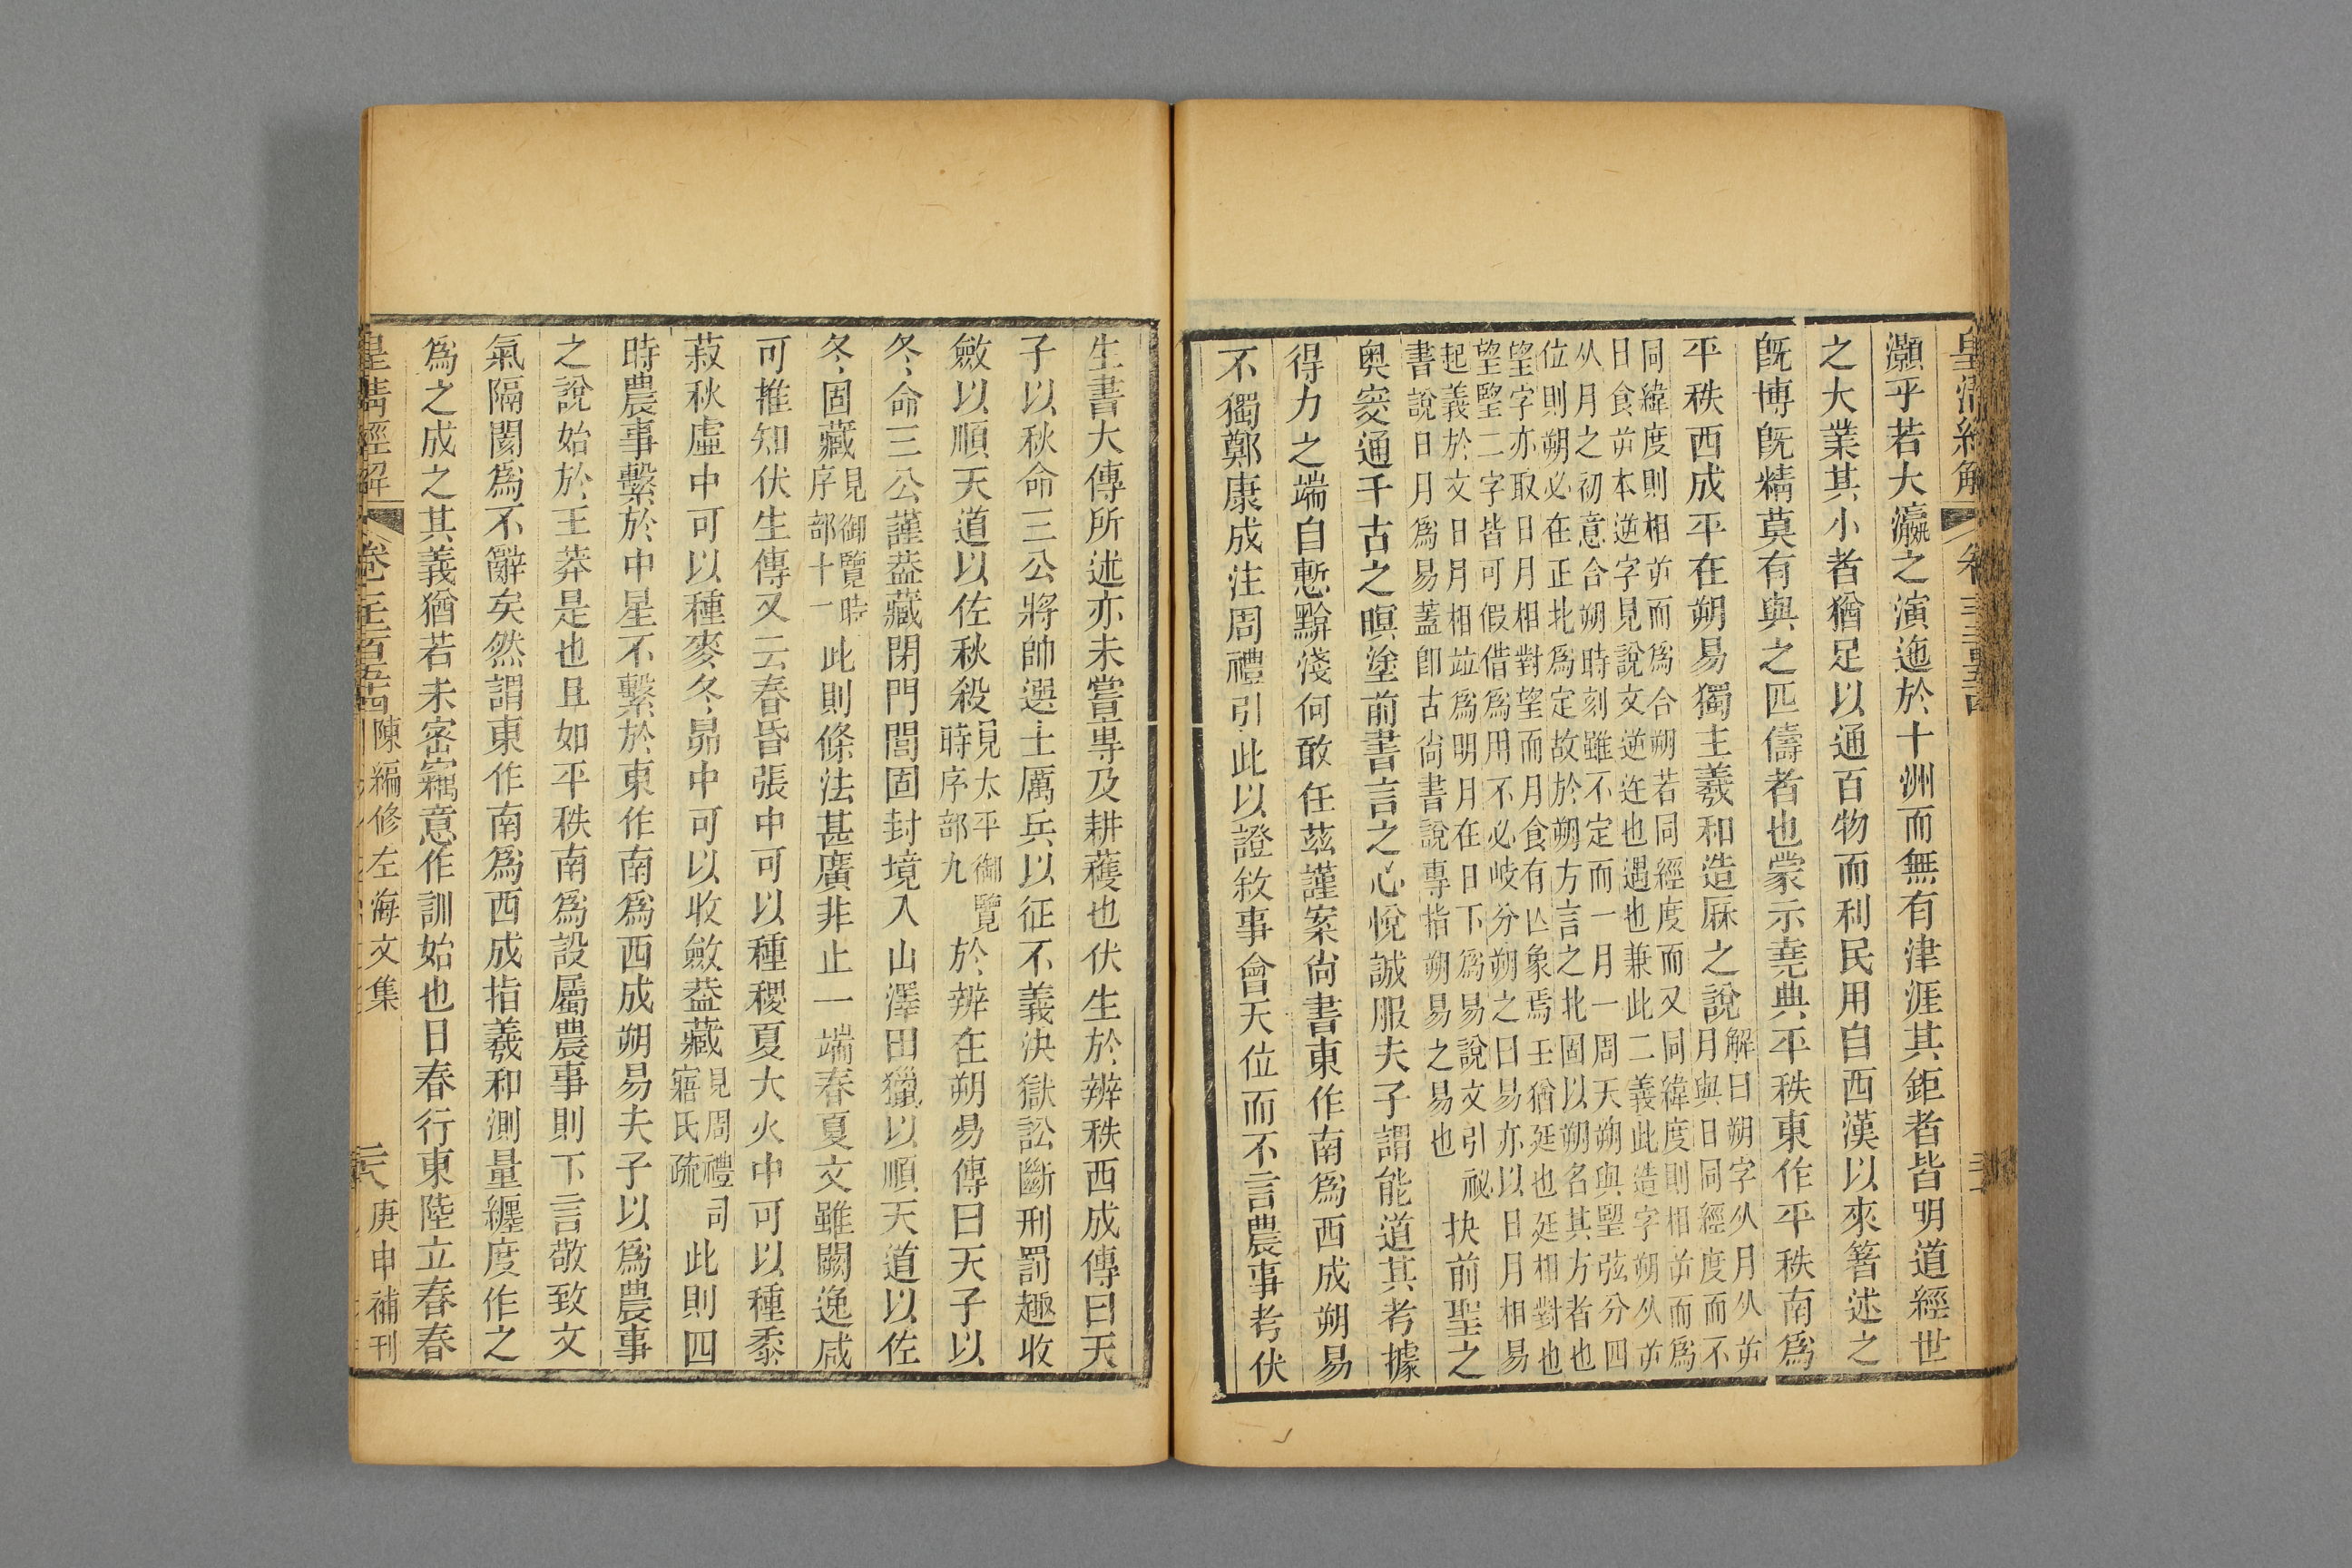 皇清經解
灝乎若大瀛之演迤於十洲而無有津涯其鉅者皆明道經世
之大業其小者猶足以通百物而利民用自西漢以來箸述之
旣博旣精莫有與之匹儔者也蒙示堯典平秩東作平秩南爲
平秩西成平在朔易獨主羲和造厤之說
解曰朔字从月从屰
月與日同經度而不
同緯度則相屰而爲合朔若同經度而又同緯度則相屰而爲
日食屰本逆字見說文逆迕也遇也兼此二義此造字朔从屰
从月之初意合朔時刻雖不定而一月一周天朔與朢弦分四
位則朔必在正北爲定故於朔方言之北固以朔名其方者也
望字亦取日月相對望而月食有亾象焉壬猶廷也廷相對也
望朢二字皆可假借爲用不必岐分朔之曰易亦以日月相易
起義於文日月相竝爲明月在日下爲易說文引祕
書說日月爲易蓋卽古尙書說專指朔易之易也
抉前聖之
奥窔通千古之暝塗前書言之心悅誠服夫子謂能道其考據
得力之端自慙黭淺何敢任茲謹案尙書東作南爲西成朔易
不獨鄭康成注周禮引此以證敘事會天位而不言農事考伏
生書大傳所述亦未嘗專及耕穫也伏生於辨秩西成傳曰天
子以秋命三公將帥選士厲兵以征不義決獄訟斷刑罰趣收
斂以順天道以佐秋殺
見太平御覽
時序部九
於辨在朔易傳曰天子以
冬命三公謹葢藏閉門閭固封境入山澤田獵以順天道以佐
冬固藏
見御覽時
序部十一
此則條法甚廣非止一端春夏文雖闕逸咸
可推知伏生傳又云春昏張中可以種稷夏大火中可以種黍
菽秋虛中可以種麥冬昴中可以收斂葢藏
見周禮司
寤氏疏
此則四
時農事繫於中星不繫於東作南爲西成朔易夫子以爲農事
之說始於王莽是也且如平秩南爲設屬農事則下言敬致文
氣隔閡爲不辭矣然謂東作南爲西成指羲和測量纏度作之
爲之成之其義猶若未密竊意作訓始也日春行東陸立春春
皇清經解 卷千二百五十四 陳編修左海文集 庚申補刊